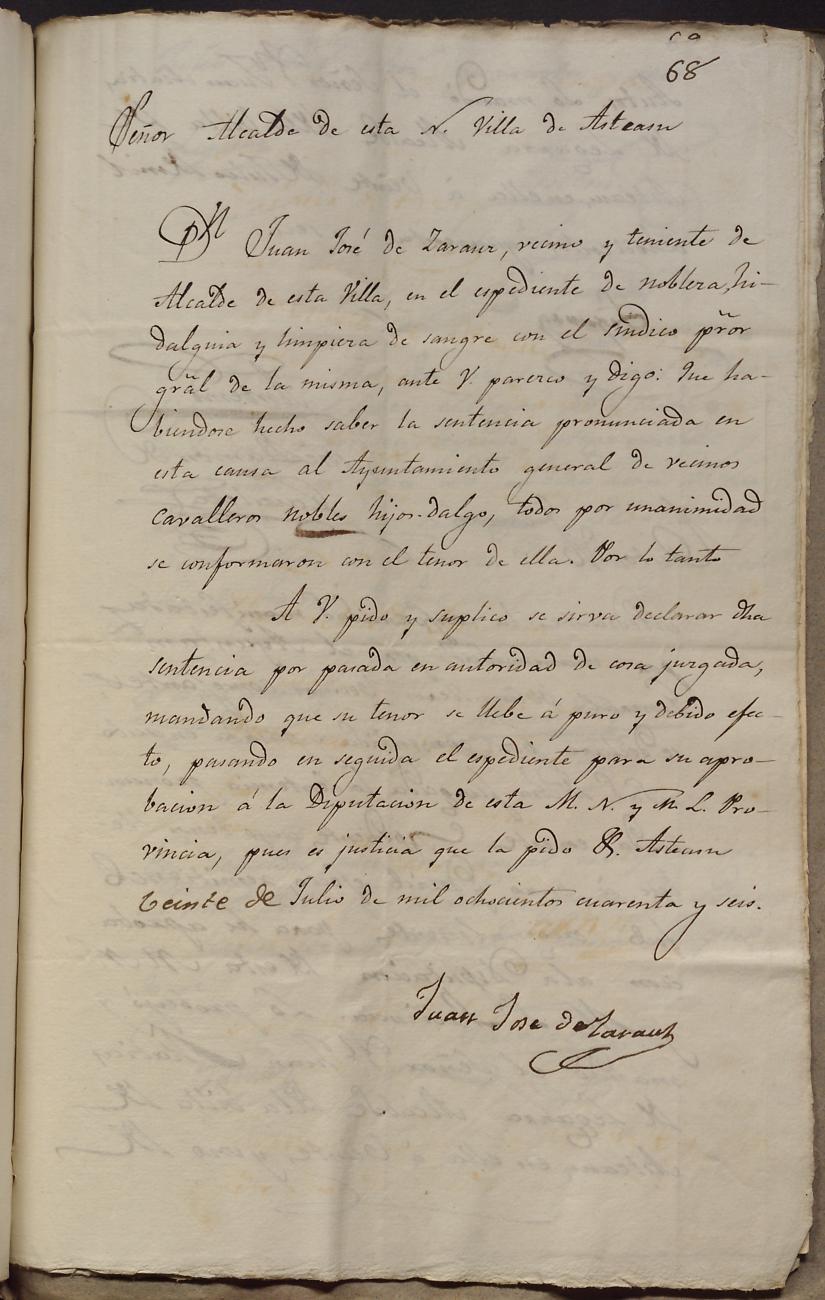 68
Señor Alcalde de esta N. Villa de Asteasu
Dn Juan José de Zarauz, vecino y teniente de
Alcalde de esta Villa, en el espediente de nobleza, hi-
dalguia y limpieza de sangre con el sindico pror
gral de la misma, ante V. parezco y digo: Que ha-
biendose hecho saber la sentencia pronunciada en
esta causa al Ayuntamiento general de vecinos
cavalleros nobles hijos-dalgo, todos por unanimidad
se conformaron con el tenor de ella. Por lo tanto
A V. pido y suplico se sirva declarar dha
sentencia por pasada en autoridad de cosa juzgada,
mandando que su tenor se llebe á puro y debido efec-
to, pasando en seguida el espediente para su apro-
bacion á la Diputacion de esta M. N. y M. L. Pro-
vincia, pues es justicia que la pido &. Asteasu
veinte de Julio de mil ochocientos cuarenta y seis.
Juan Jose de Zarauz